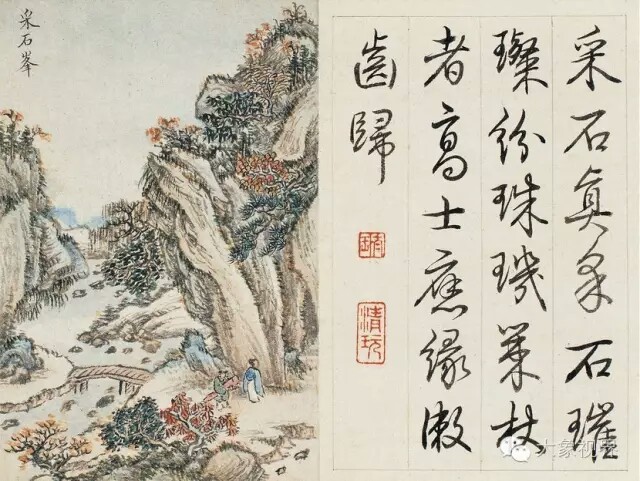 采石峯
采石真采石璀
璨紛珠璣策杖
者高士應緣漱
齒歸
清玩
大象视